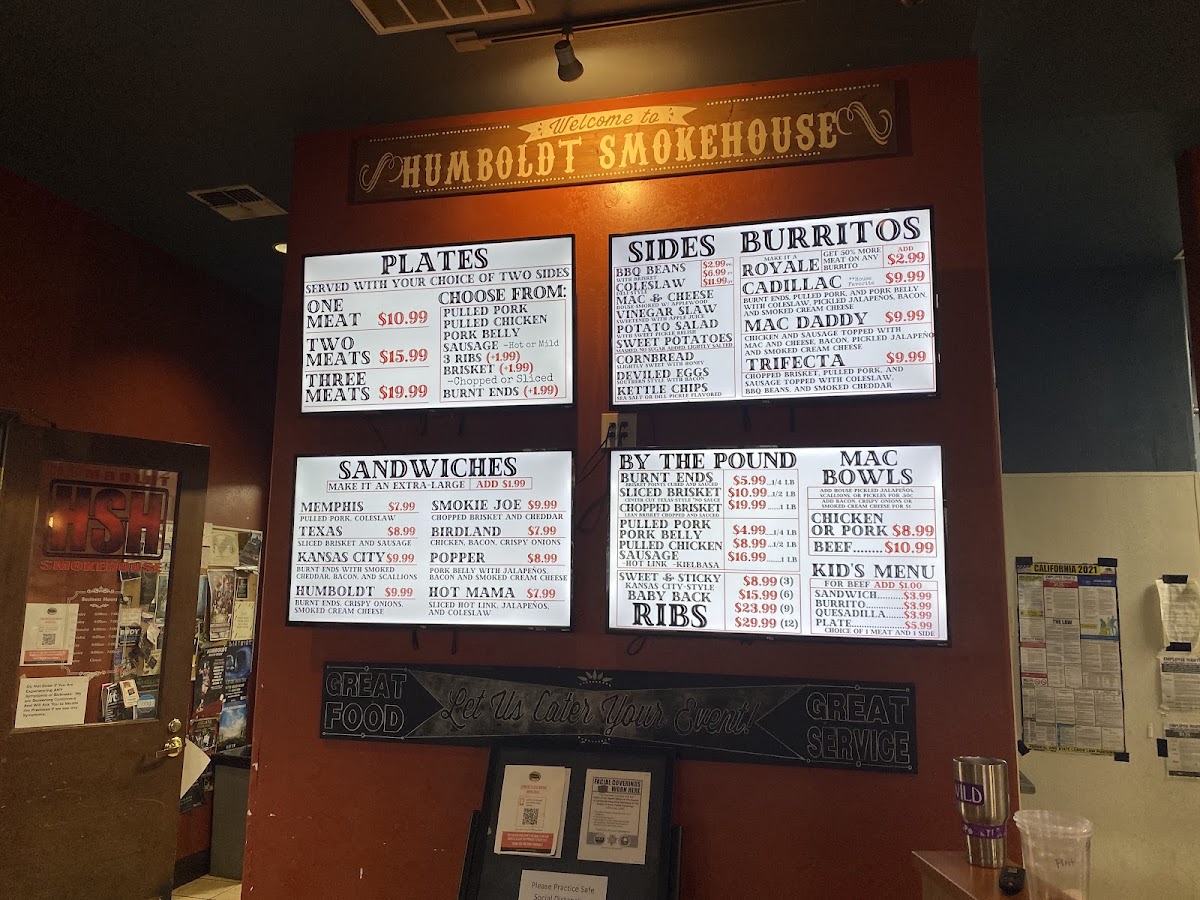 Welcome to
HUMBOLDT SMOKEHOUSE
PLATES
SERVED WITH YOUR CHOICE OF TWO SIDES
ONE MEAT $10.99
TWO MEATS $15.99
THREE MEATS $19.99
CHOOSE FROM:
PULLED PORK
PULLED CHICKEN
PORK BELLY
SAUSAGE -Hot or Mild
3 RIBS (+1.99)
BRISKET (+1.99)
-Chopped or Sliced
BURNT ENDS (+1.99)
SIDES
$2.99
$6.99
$11.99
BBQ BEANS
WITH BRISKET
COLESLAW
MAC & CHEESE
HOUSE SMOKED W/ APPLEWOOD
VINEGAR SLAW
SWEETENED WITH APPLE JUICE
POTATO SALAD
WITH SWEET PICKLE RELISH
SWEET POTATOES
MASHED NO SUGAR ADDED LIGHTLY SALTED
CORNBREAD
SLIGHTLY SWEET WITH HONEY
DEVILED EGGS
SOUTHERN STYLE WITH BACON
KETTLE CHIPS
SEA SALT OR DILL PICKLE FLAVORED
BURRITOS
MAKE IT A
ROYALE
GET 50% MORE
MEAT ON ANY
BURRITO
ADD
$2.99
CADILLAC **House Favorite $9.99
BURNT ENDS, PULLED PORK, AND PORK BELLY
WITH COLESLAW, PICKLED JALAPENOS, BACON,
AND SMOKED CREAM CHEESE
MAC DADDY $9.99
CHICKEN AND SAUSAGE TOPPED WITH
MAC AND CHEESE, BACON, PICKLED JALAPEÑO
AND SMOKED CREAM CHEESE
TRIFECTA $9.99
CHOPPED BRISKET, PULLED PORK, AND
SAUSAGE TOPPED WITH COLESLAW,
BBQ BEANS, AND SMOKED CHEDDAR
SANDWICHES
MAKE IT AN EXTRA-LARGE ADD $1.99
MEMPHIS $7.99
PULLED PORK, COLESLAW
TEXAS $8.99
SLICED BRISKET AND SAUSAGE
KANSAS CITY $9.99
BURNT ENDS WITH SMOKED
CHEDDAR, BACON, AND SCALLIONS
HUMBOLDT $9.99
BURNT ENDS, CRISPY ONIONS,
SMOKED CREAM CHEESE
SMOKIE JOE $9.99
CHOPPED BRISKET AND CHEDDAR
BIRDLAND $7.99
CHICKEN, BACON, CRISPY ONIONS
POPPER $8.99
PORK BELLY WITH JALAPEÑOS,
BACON AND SMOKED CREAM CHEESE
HOT MAMA $7.99
SLICED HOT LINK, JALAPEÑOS,
AND COLESLAW
BY THE POUND
BURNT ENDS
BRISKET POINTS CUBED AND SAUCED
SLICED BRISKET
CENTER CUT TEXAS-STYLE *NO SAUCE
CHOPPED BRISKET
LEAN BRISKET CHOPPED AND SAUCED
$5.99...1/4 LB
$10.99...1/2 LB
$19.99......1 LB
PULLED PORK
PORK BELLY
PULLED CHICKEN
SAUSAGE
-HOT LINK -KIELBASA
$4.99...1/4 LB
$8.99...1/2 LB
$16.99.....1 LB
SWEET & STICKY
KANSAS CITY-STYLE
BABY BACK
RIBS
$8.99 (3)
$15.99 (6)
$23.99 (9)
$29.99 (12)
MAC
BOWLS
ADD HOUSE PICKLED JALAPEÑOS,
SCALLIONS, OR PICKLES FOR .50¢
ADD BACON, CRISPY ONIONS OR
SMOKED CREAM CHEESE FOR $1
CHICKEN
OR PORK $8.99
BEEF........$10.99
KID'S MENU
FOR BEEF ADD $1.00
SANDWICH......$3.99
BURRITO........$3.99
QUESADILLA....$3.99
PLATE...........$5.99
CHOICE OF 1 MEAT AND 1 SIDE
GREAT
FOOD
Let Us Cater Your Event!
GREAT
SERVICE
HUMBOLDT
HSH
SMOKEHOUSE
Business Hours
CALIFORNIA 2021
FACIAL COVERINGS
WORN HERE
Please Practice Safe
WILD